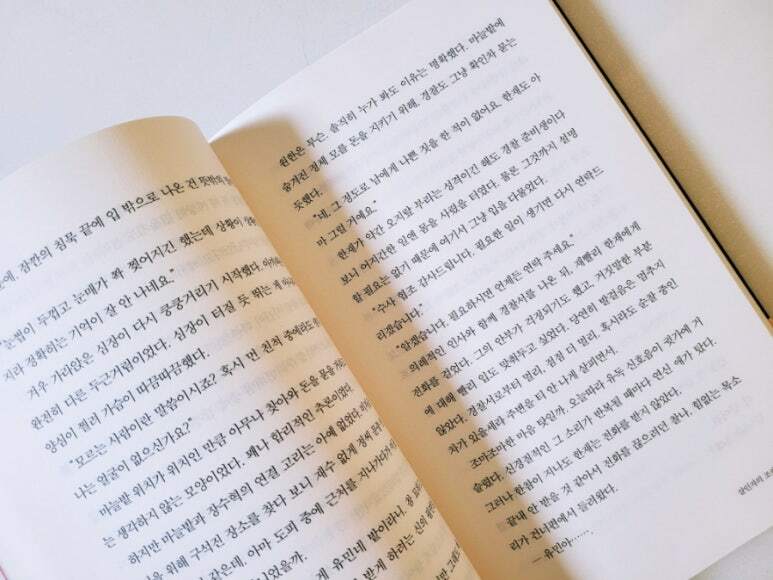 잠깐의 침묵 끝에 입 밖으로 나온 건 뜻밖의
"눈썹이 두껍고, 눈매가 쫙 찢어지긴 했는데 상황이
지라 정확하는 기억이 잘 안 나네요."
겨우 가라앉은 심장이 다시 쿵쿵거리기 시작했다.
완전히 다른 두근거림이었다. 심장이 터질 듯 뛰는 게
양심이 찔려 가슴이 따끔따끔했다.
"모르는 사람이란 말씀이시죠? 혹시 먼 친척 중에라도
나는 얼굴이 없으신가요?"
마늘밭 위치가 위치인 만큼 아무나 찾아와 돈을 묻을
는 생각하지 않는 모양이었다. 꽤나 합리적인 추론이었다.
하지만 마늘밭과 장수혁의 연결 고리는 아예 없었다.
을 위해 구석진 장소를 찾다 보니 재수 없게
같은데, 아마 도피 중에 근처를 지나가다가
게 유민네 밭이라니.
받게 하려는 신의
원한은 무슨. 솔직히 누가 봐도 이유는 명확했다. 마늘밭에
숨겨진 정체 모를 돈을 지키기 위해. 경찰도 그냥 확인차 묻는
듯했다.
"네. 그 정도로 남에게 나쁜 짓을 한 적이 없어요. 한재도 아
마 그럴 거예요."
한재가 약간 오지랖 부리는 성격이긴 해도 경찰 준비생이다
보니 어지간한 일엔 몸을 사렸을 터였다. 물론 그것까지 설명
할 필요는 없기 때문에 여기서 그냥 입을 다물었다.
"수사 협조 감사드립니다. 필요한 일이 생기면 다시 연락드
리겠습니다."
"알겠습니다. 필요하시면 언제든 연락 주세요."
의례적인 인사와 함께 경찰서를 나온 뒤, 재빨리 한재에게
전화를 걸었다. 그의 안부가 걱정되기도 했고, 거짓말한 부분
에 대해 빨리 입도 맞춰두고 싶었다. 당연히 발걸음은 멈추지
않았다. 경찰서로부터 멀리, 점점 더 멀리. 혹시라도 순찰 중인
차가 있을세라 주변을 티 안 나게 살피면서.
조마조마한 마음 탓인가. 오늘따라 유독 신호음이 귓가에 거
슬렸다. 신경질적인 그 소리가 반복될 때마다 연신 애가 탔다.
그러나 한참이 지나도 한재는 전화를 받지 않았다.
끝내 안 받을 것 같아서 전화를 끊으려던 찰나, 힘없는 목소
리가 건너편에서 들려왔다.
―유민아…….